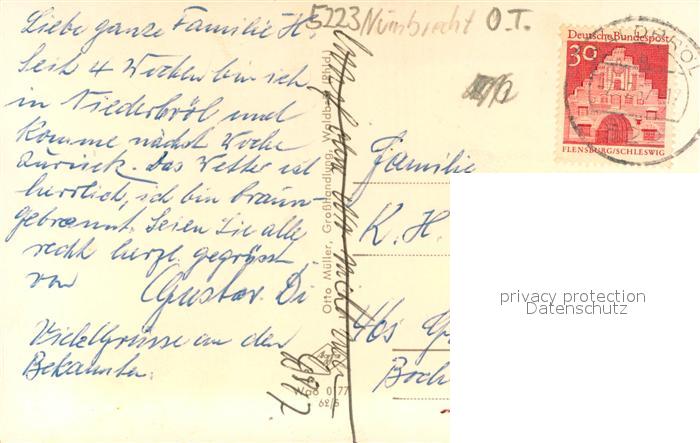 5223 Nümbrecht O.T.
Liebe ganze Familie H.
Seit 4 Wochen bin ich
in Niederbröl und
komme nächst Woche
zurück. Das Wetter ist
herrlich, ich bin braun-
gebrannt. Seien Sie alle
recht herzl. gegrüsst
von
Gustav. Di
Vielelgrüsse an den
Bekannten.
Otto Müller, Großhandlung, Waldbröl (Rhld.)
Wo6 0177
62/5
Familie
K. H.
463
Boch
Deutsche Bundespost
30
FLENSBURG/SCHLESWIG
privacy protection
Datenschutz